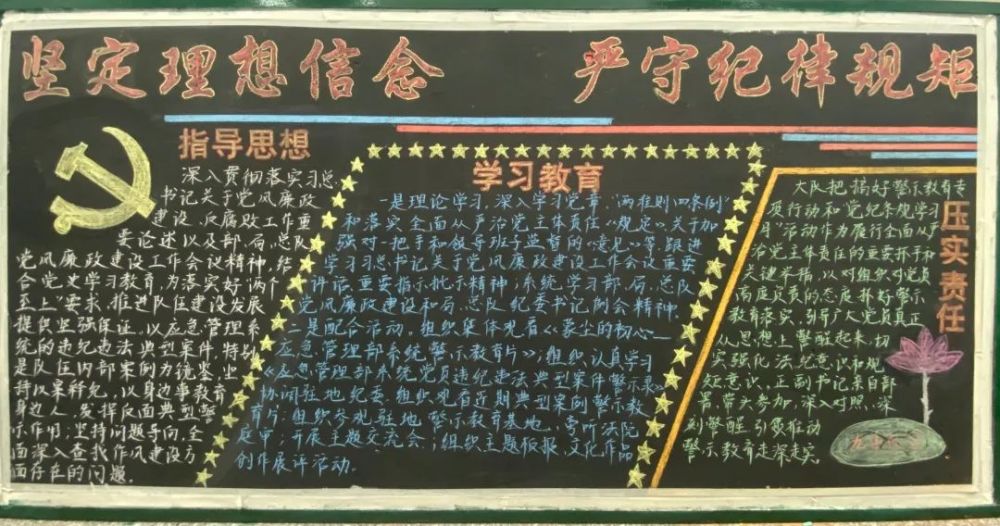 坚定理想信念 严守纪律规矩
指导思想
深入贯彻落实习总
书记关于党风廉政
建设、反腐败工作重
要论述以及部、局、总队
党风廉政建设工作会议精神,结
合党史学习教育,为落实好"两个
至上"要求、推进队伍建设发展
提供坚强保证,以应急管理系
统的违纪违法典型案件,特别
是队伍内部案例为镜鉴,坚
持以案释纪,以身边事教育
身边人,发挥反面典型警
示作用;坚持问题导向,全
面深入查找作风建设方
面存在的问题。
学习教育
一是理论学习,深入学习党章、"两准则四条例"
和落实全面从严治党主体责任《规定》、关于加
强对一把手和领导班子监督的《意见》等,跟进
学习习总书记关于党风廉政建设工作会议重要
讲话、重要指示批示精神;系统学习部、局、总队
党风廉政建设和局、总队纪委书记例会精神
二是配合活动。组织集体观看《蒙尘的初心——
应急管理部系统警示教育片》;组织认真学习
《应急管理部系统党员违纪违法典型案件警示录》
协调驻地纪委组织观看近期典型案例警示教
育片;组织参观驻地警示教育基地、旁听法院
庭审;开展主题交流会;组织主题板报、文化作品
创作展评活动。
压实责任
大队把搞好警示教育专
项行动和"党纪条规学习
月"活动作为履行全面从严
治党主体责任的重要抓手和
关键举措,以对组织对党员
高度负责的态度抓好警示
教育落实,引导广大党员真正
从思想上警醒起来,切
实强化法纪意识和规
矩意识,正副书记亲自部
署、带头参加,深入对照、深
刻警醒,引领推动
警示教育走深走实